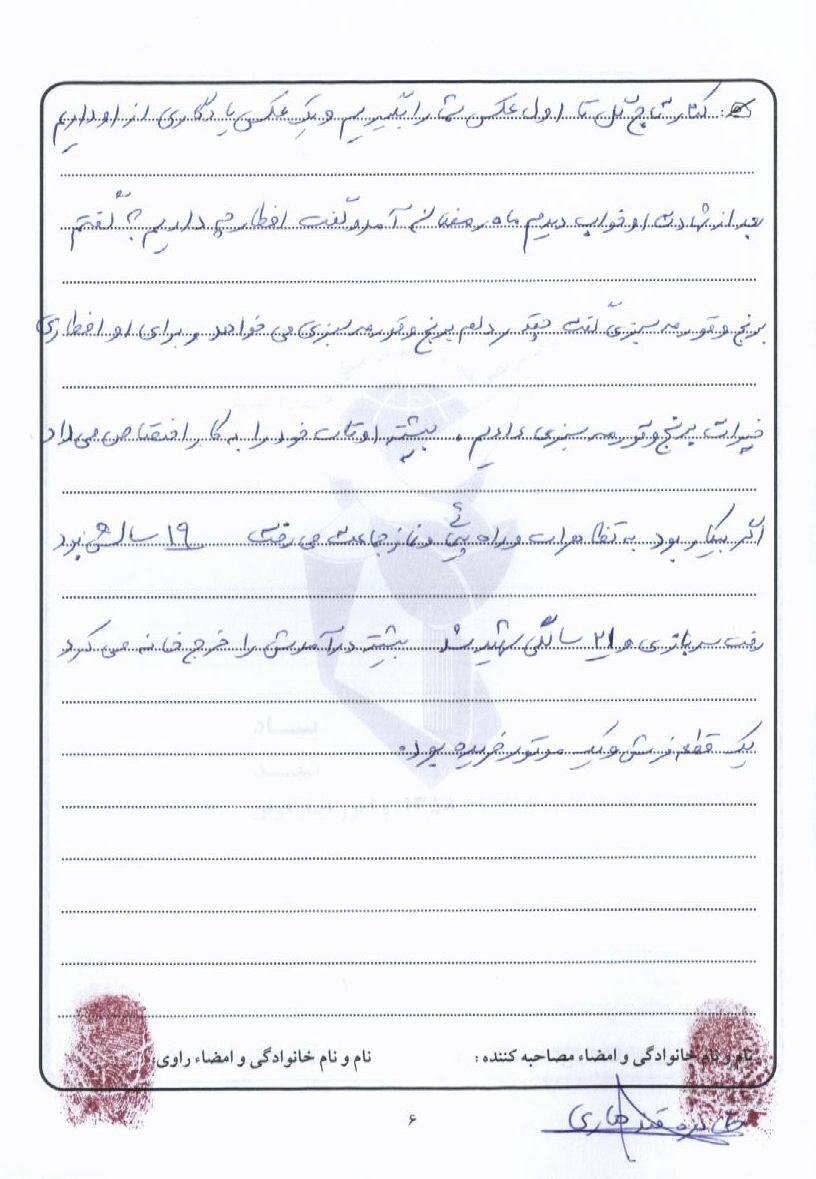 کنار تاج گل تا اول عکس شما را بگیریم و یک عکس یادگاری از او داریم
بعد از شهادت او خواب دیدم ماه رمضان آمد و گفت افطار چه داریم؟ گفتم
برنج و قورمه سبزی گفت چقدر دلم برنج و قورمه سبزی می خواهد و برای او افطاری
خیرات برنج و قورمه سبزی دادیم. بیشتر اوقات خود را به کار اختصاص می داد
اگر بیکار بود به تظاهرات و راه پیمائی و نماز جماعت می رفت ۱۹ سالش بود
رفت سربازی و ۲۱ سالگی شهید شد بیشتر درآمدش را خرج خانه می کرد
یک قطعه فرش و یک موتور خریده بود.
نام و نام خانوادگی و امضاء مصاحبه کننده :
نام و نام خانوادگی و امضاء راوی:
قندهاری
۶